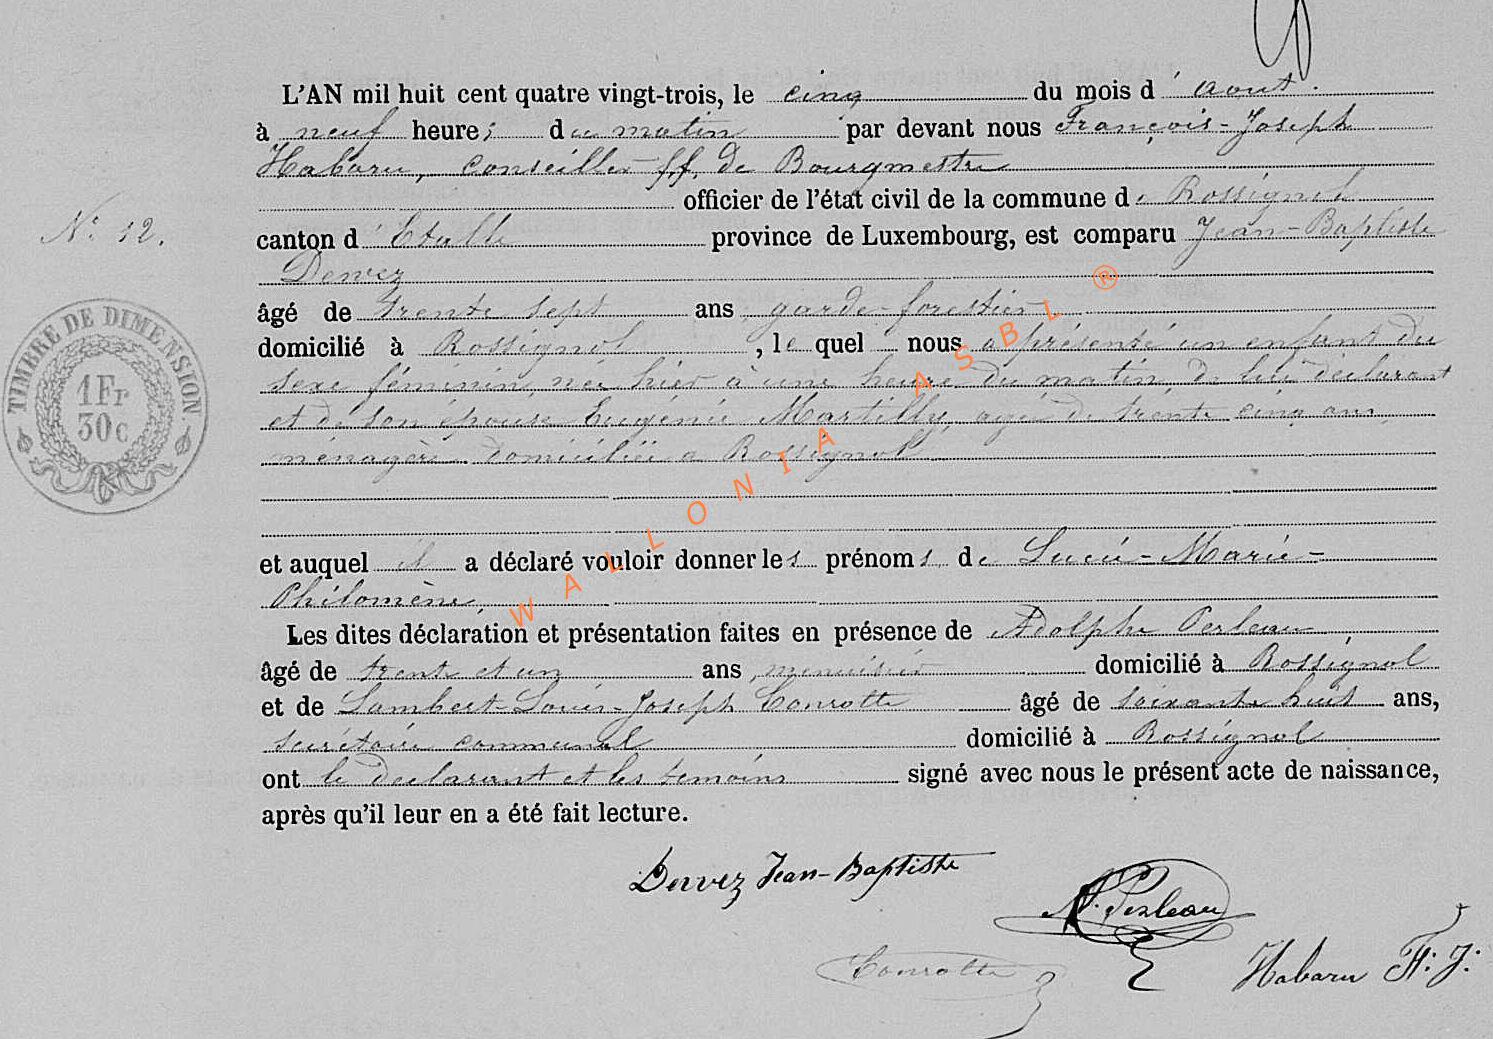 L'AN mil huit cent quatre vingt-trois, le cinq du mois d'aout.
à neuf heures du matin par devant nous François-Joseph
Habaru, conseiller ff. de Bourgmestre
officier de l'état civil de la commune de Rossignol
N° 12.
canton d'Etalle province de Luxembourg, est comparu Jean-Baptiste
Dervez
âgé de trente sept ans garde-forestier
domicilié à Rossignol, lequel nous a présenté un enfant du
sexe féminin, née hier à une heure du matin, de lui déclarant
et de son épouse Eugénie Martilly, agée de trente cinq ans,
ménagère domiciliée a Rossignol
et auquel il a déclaré vouloir donner les prénoms de Lucie-Marie-
Philomène,
Les dites déclaration et présentation faites en présence de Adolphe Perleau,
âgé de trente et un ans, menuisier domicilié à Rossignol
et de Lambert-Louis-Joseph Conrotte âgé de soixante huit ans,
secrétaire communal domicilié à Rossignol
ont le declarant et les temoins signé avec nous le présent acte de naissance,
après qu'il leur en a été fait lecture.
Dervez Jean-Baptiste
A. Perleau
Conrotte
Habaru F. J.
TIMBRE DE DIMENSION
1 Fr
30 c
WALLONIA ASBL ®